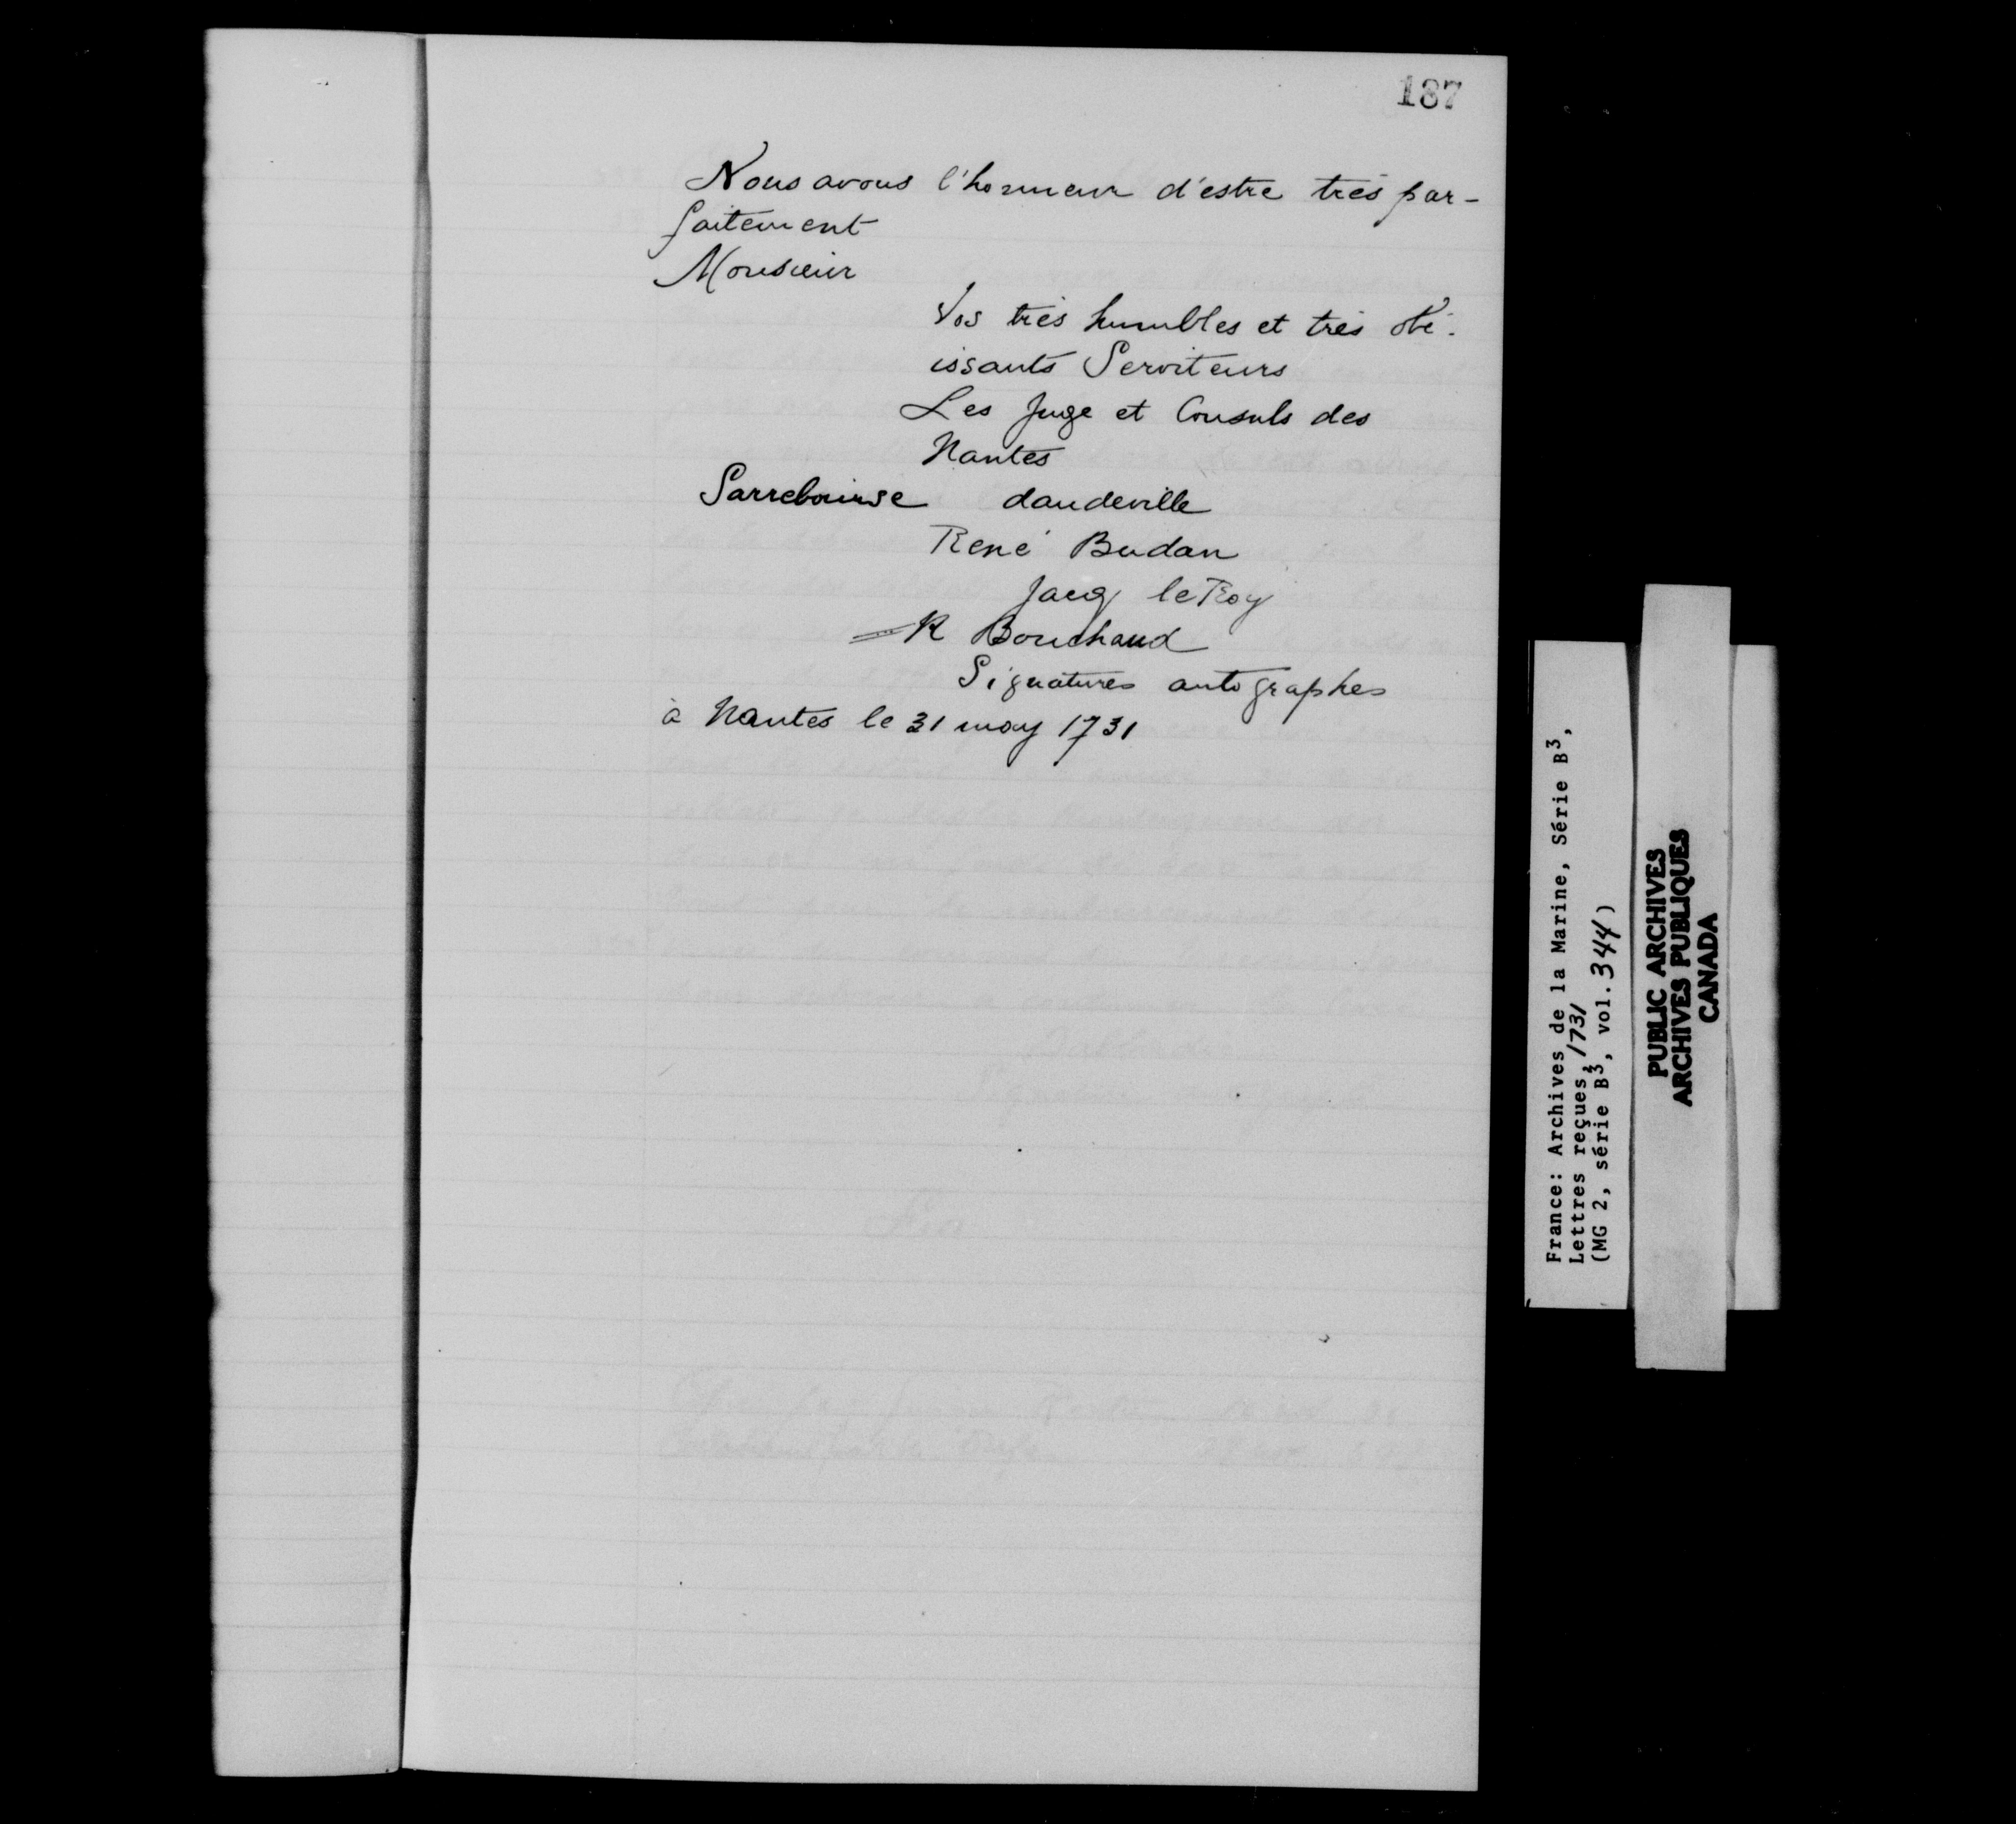 187
Nous avons l'honneur d'estre très par-
faitement
Monsieur
Vos très humbles et très obé-
issants Serviteurs
Les Juge et Consuls des
Nantes
Sarrebourse daudeville
René Budan
Jacq le Roy
R Bouchaud
Signatures autographes
à Nantes le 31 may 1731
France: Archives de la Marine, Série B3,
Lettres reçues, 1731
(MG 2, série B3, vol. 344)
PUBLIC ARCHIVES
ARCHIVES PUBLIQUES
CANADA